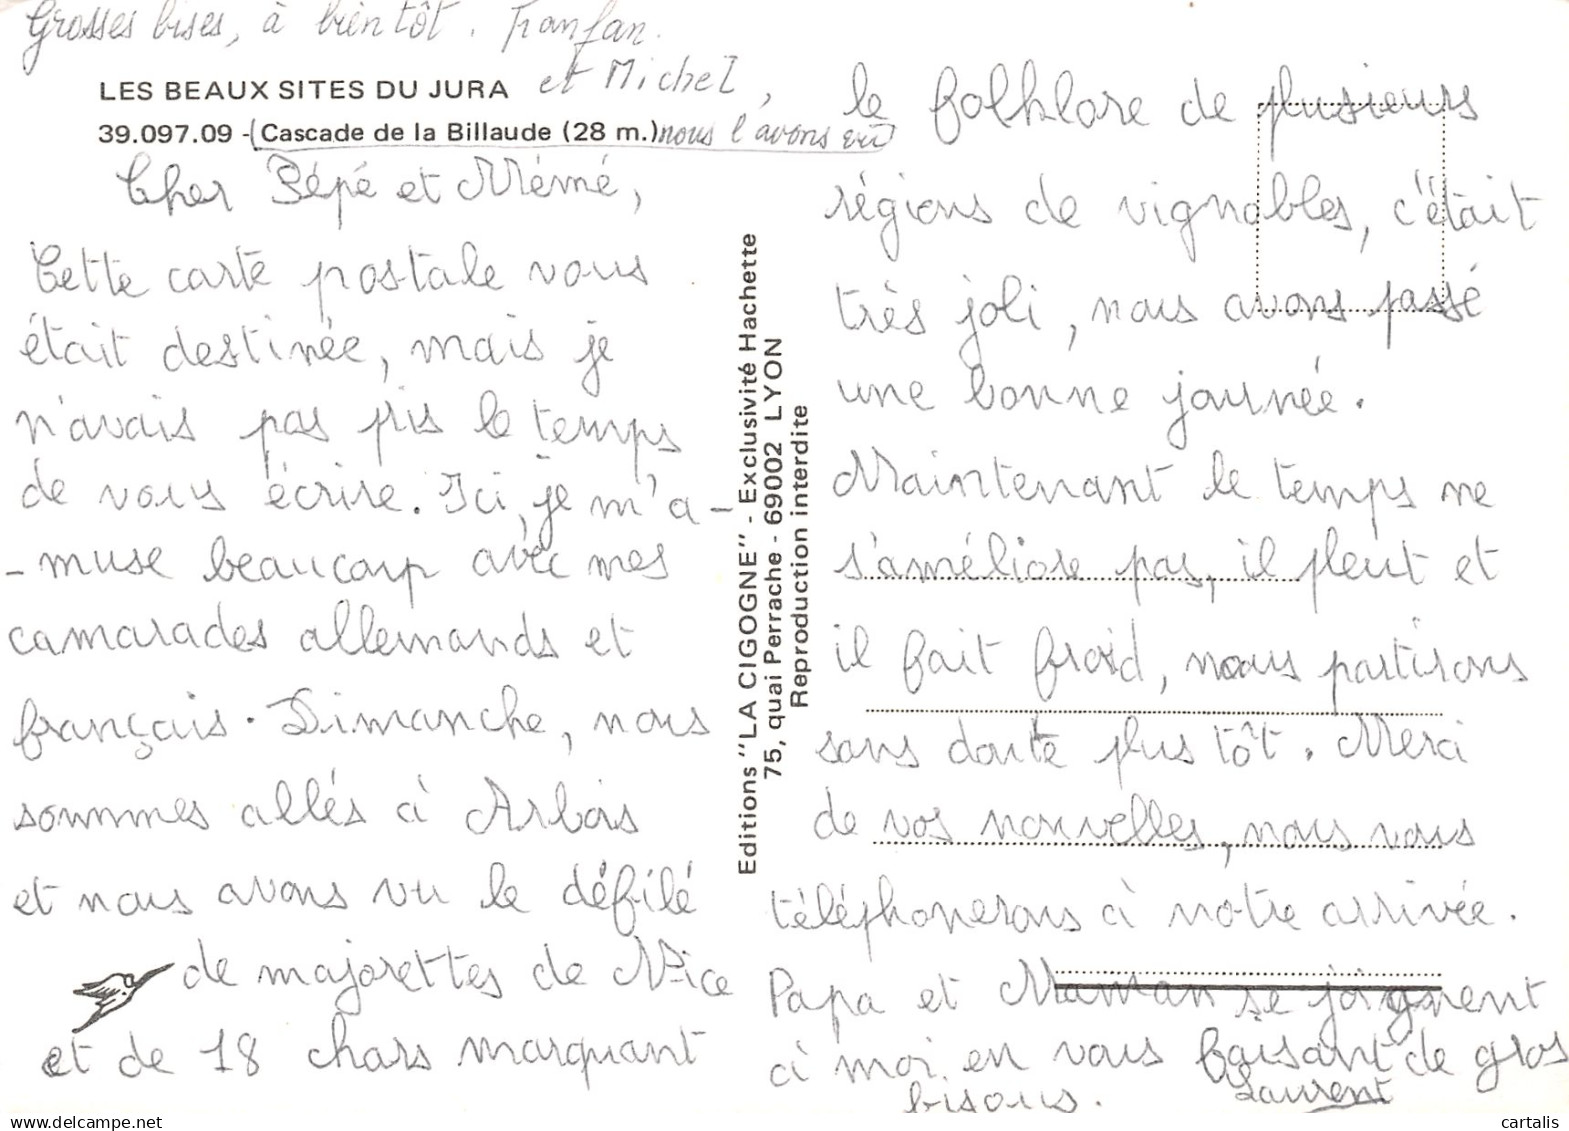 Grosses bises, à bientôt. Fanfan
et Michel,
LES BEAUX SITES DU JURA
39.097.09 - (Cascade de la Billaude (28 m.) nous l'avons vu)
Cher Pépé et Mémé,
Cette carte postale vous
était destinée, mais je
n'avais pas pris le temps
de vous écrire. Ici, je m'a-
-muse beaucoup avec mes
camarades allemands et
français. Dimanche, nous
sommes allés à Arbois
et nous avons vu le défilé
de majorettes de Nice
et de 18 chars marquant
Editions "LA CIGOGNE" - Exclusivité Hachette
75, quai Perrache - 69002 LYON
Reproduction interdite
le folklore de plusieurs
régions de vignobles, c'était
très joli, nous avons passé
une bonne journée.
Maintenant le temps ne
s'améliore pas, il pleut et
il fait froid, nous partirons
sans doute plus tôt. Merci
de vos nouvelles, nous vous
téléphonerons à notre arrivée.
Papa et Maman se joignent
à moi en vous faisant de gros
bisous. Laurent
cartalis